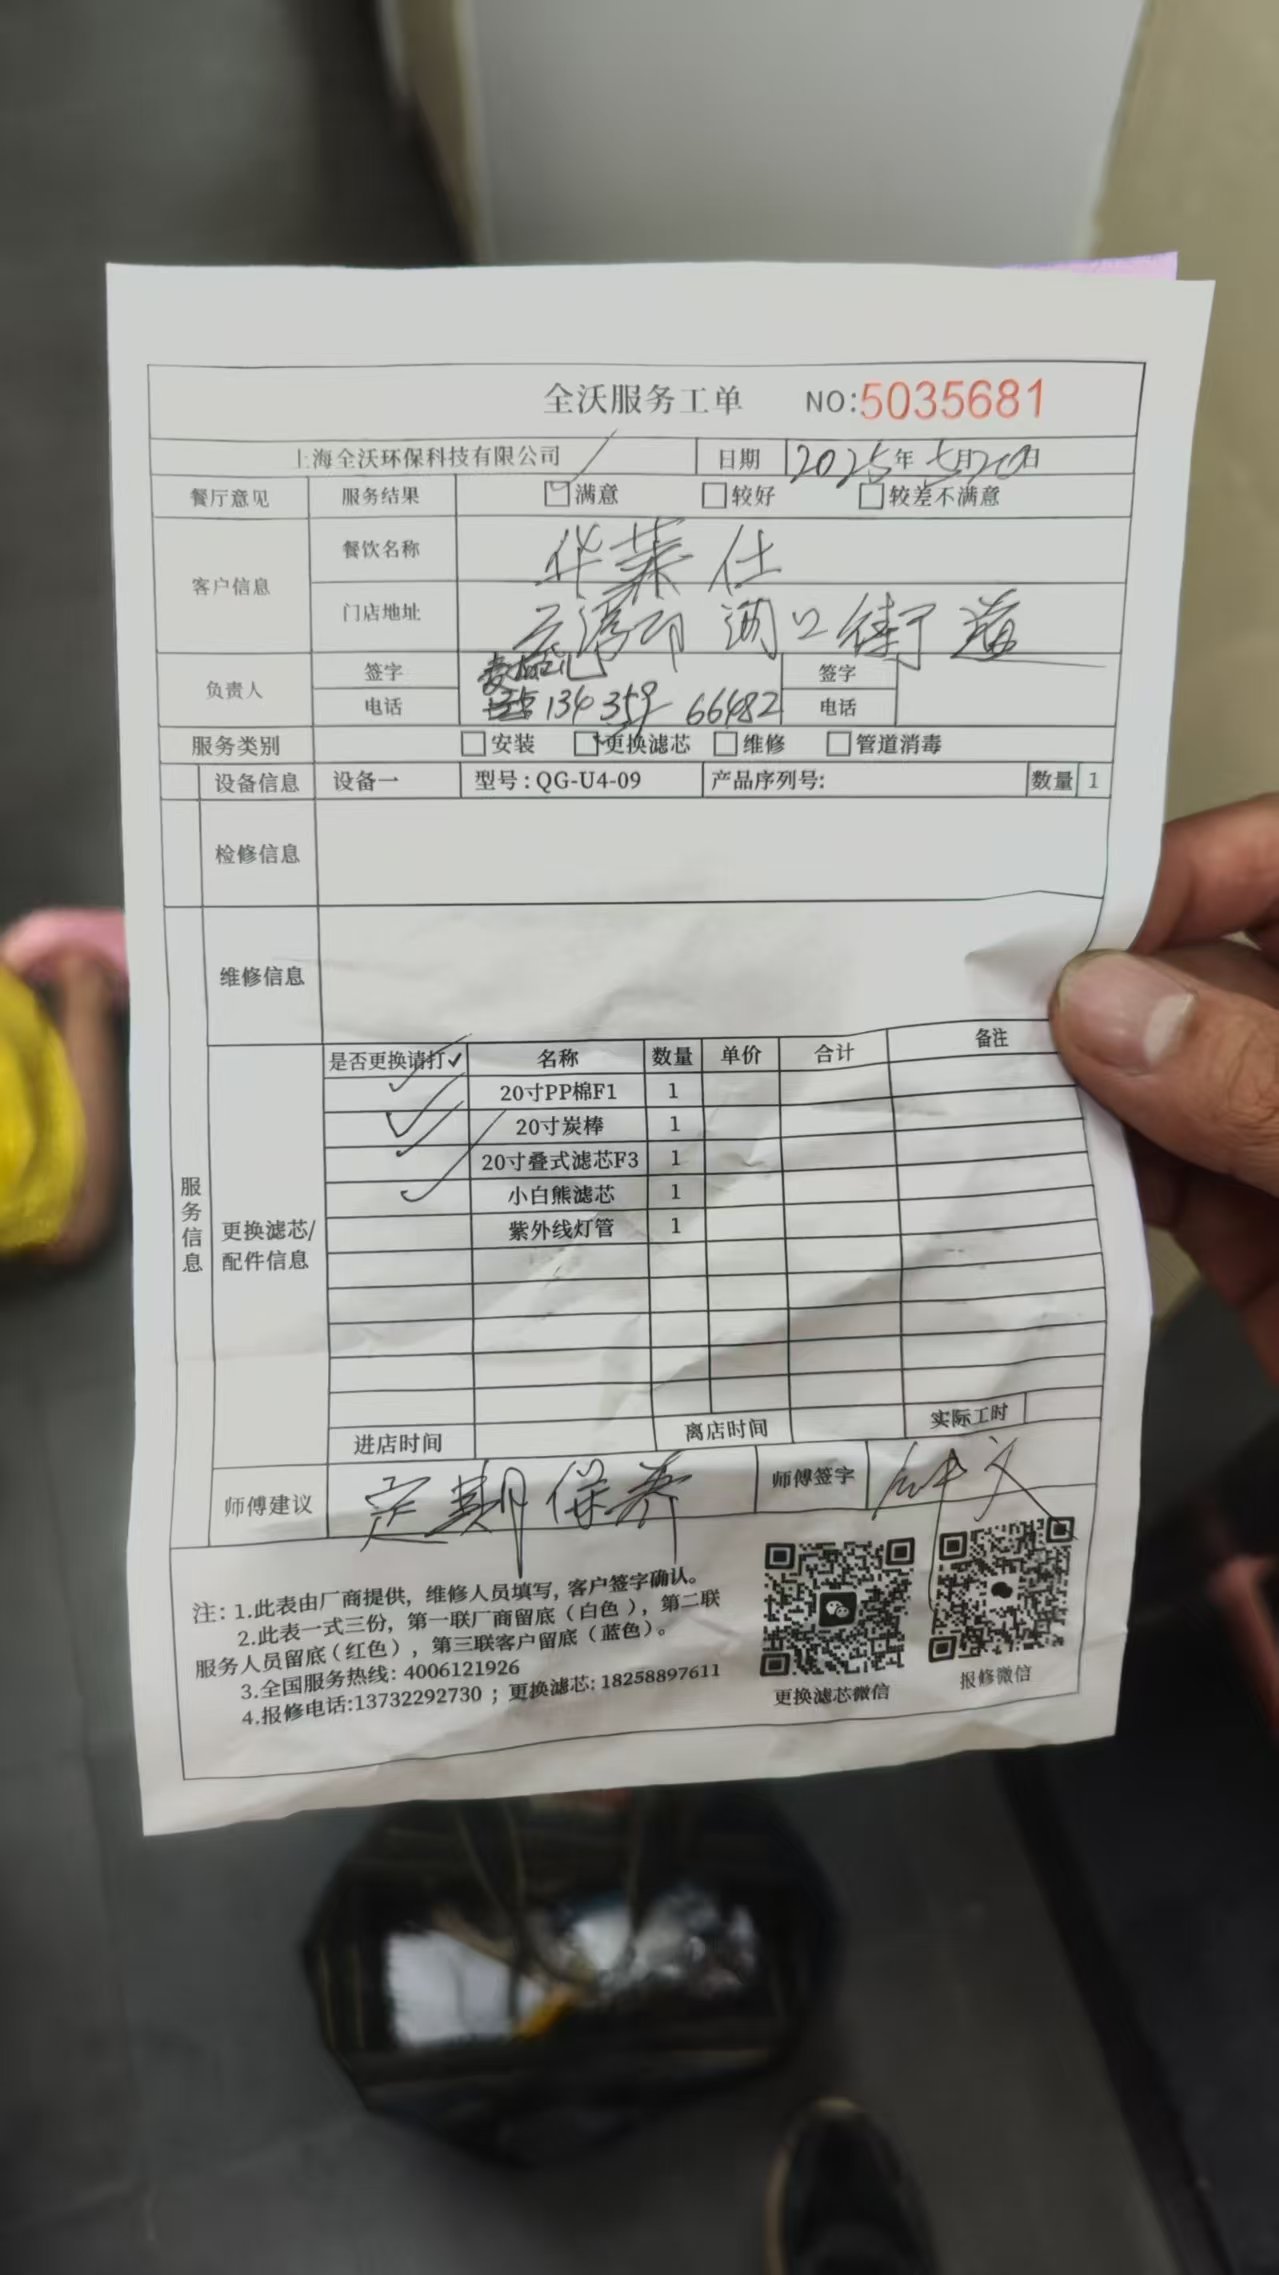 全沃服务工单 NO:5035681
上海全沃环保科技有限公司 日期 2025年5月20日
餐厅意见 服务结果 ☑满意 □较好 □较差不满意
客户信息 餐饮名称 华莱仕
门店地址 口街道
负责人 签字 签字
电话 134 359 66482 电话
服务类别 □安装 ☑更换滤芯 □维修 □管道消毒
设备信息 设备一 型号:QG-U4-09 产品序列号: 数量 1
检修信息
维修信息
服务信息
更换滤芯/配件信息
是否更换请打✓ 名称 数量 单价 合计 备注
✓ 20寸PP棉F1 1
✓ 20寸炭棒 1
✓ 20寸叠式滤芯F3 1
✓ 小白熊滤芯 1
紫外线灯管 1
进店时间 离店时间 实际工时
师傅建议 定期保养 师傅签字
注:1.此表由厂商提供,维修人员填写,客户签字确认。
2.此表一式三份,第一联厂商留底(白色),第二联
服务人员留底(红色),第三联客户留底(蓝色)。
3.全国服务热线:4006121926
4.报修电话:13732292730;更换滤芯:18258897611
更换滤芯微信 报修微信